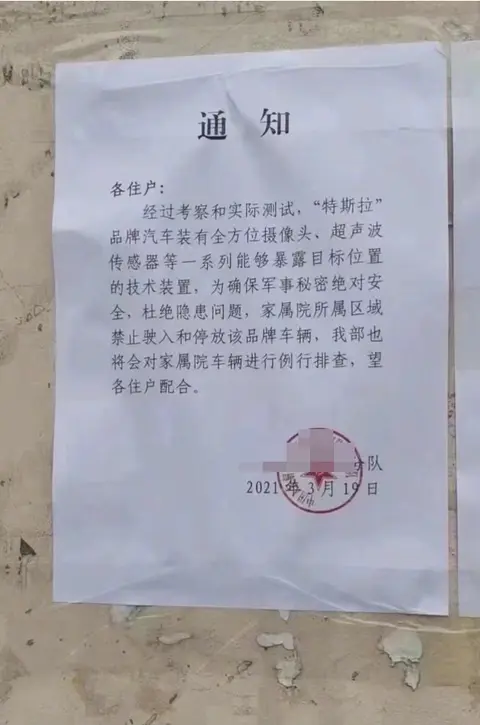 通 知
各住户：
经过考察和实际测试，“特斯拉”
品牌汽车装有全方位摄像头、超声波
传感器等一系列能够暴露目标位置
的技术装置，为确保军事秘密绝对安
全，杜绝隐患问题，家属院所属区域
禁止驶入和停放该品牌车辆，我部也
将会对家属院车辆进行例行排查，望
各住户配合。
队
2021年3月19日